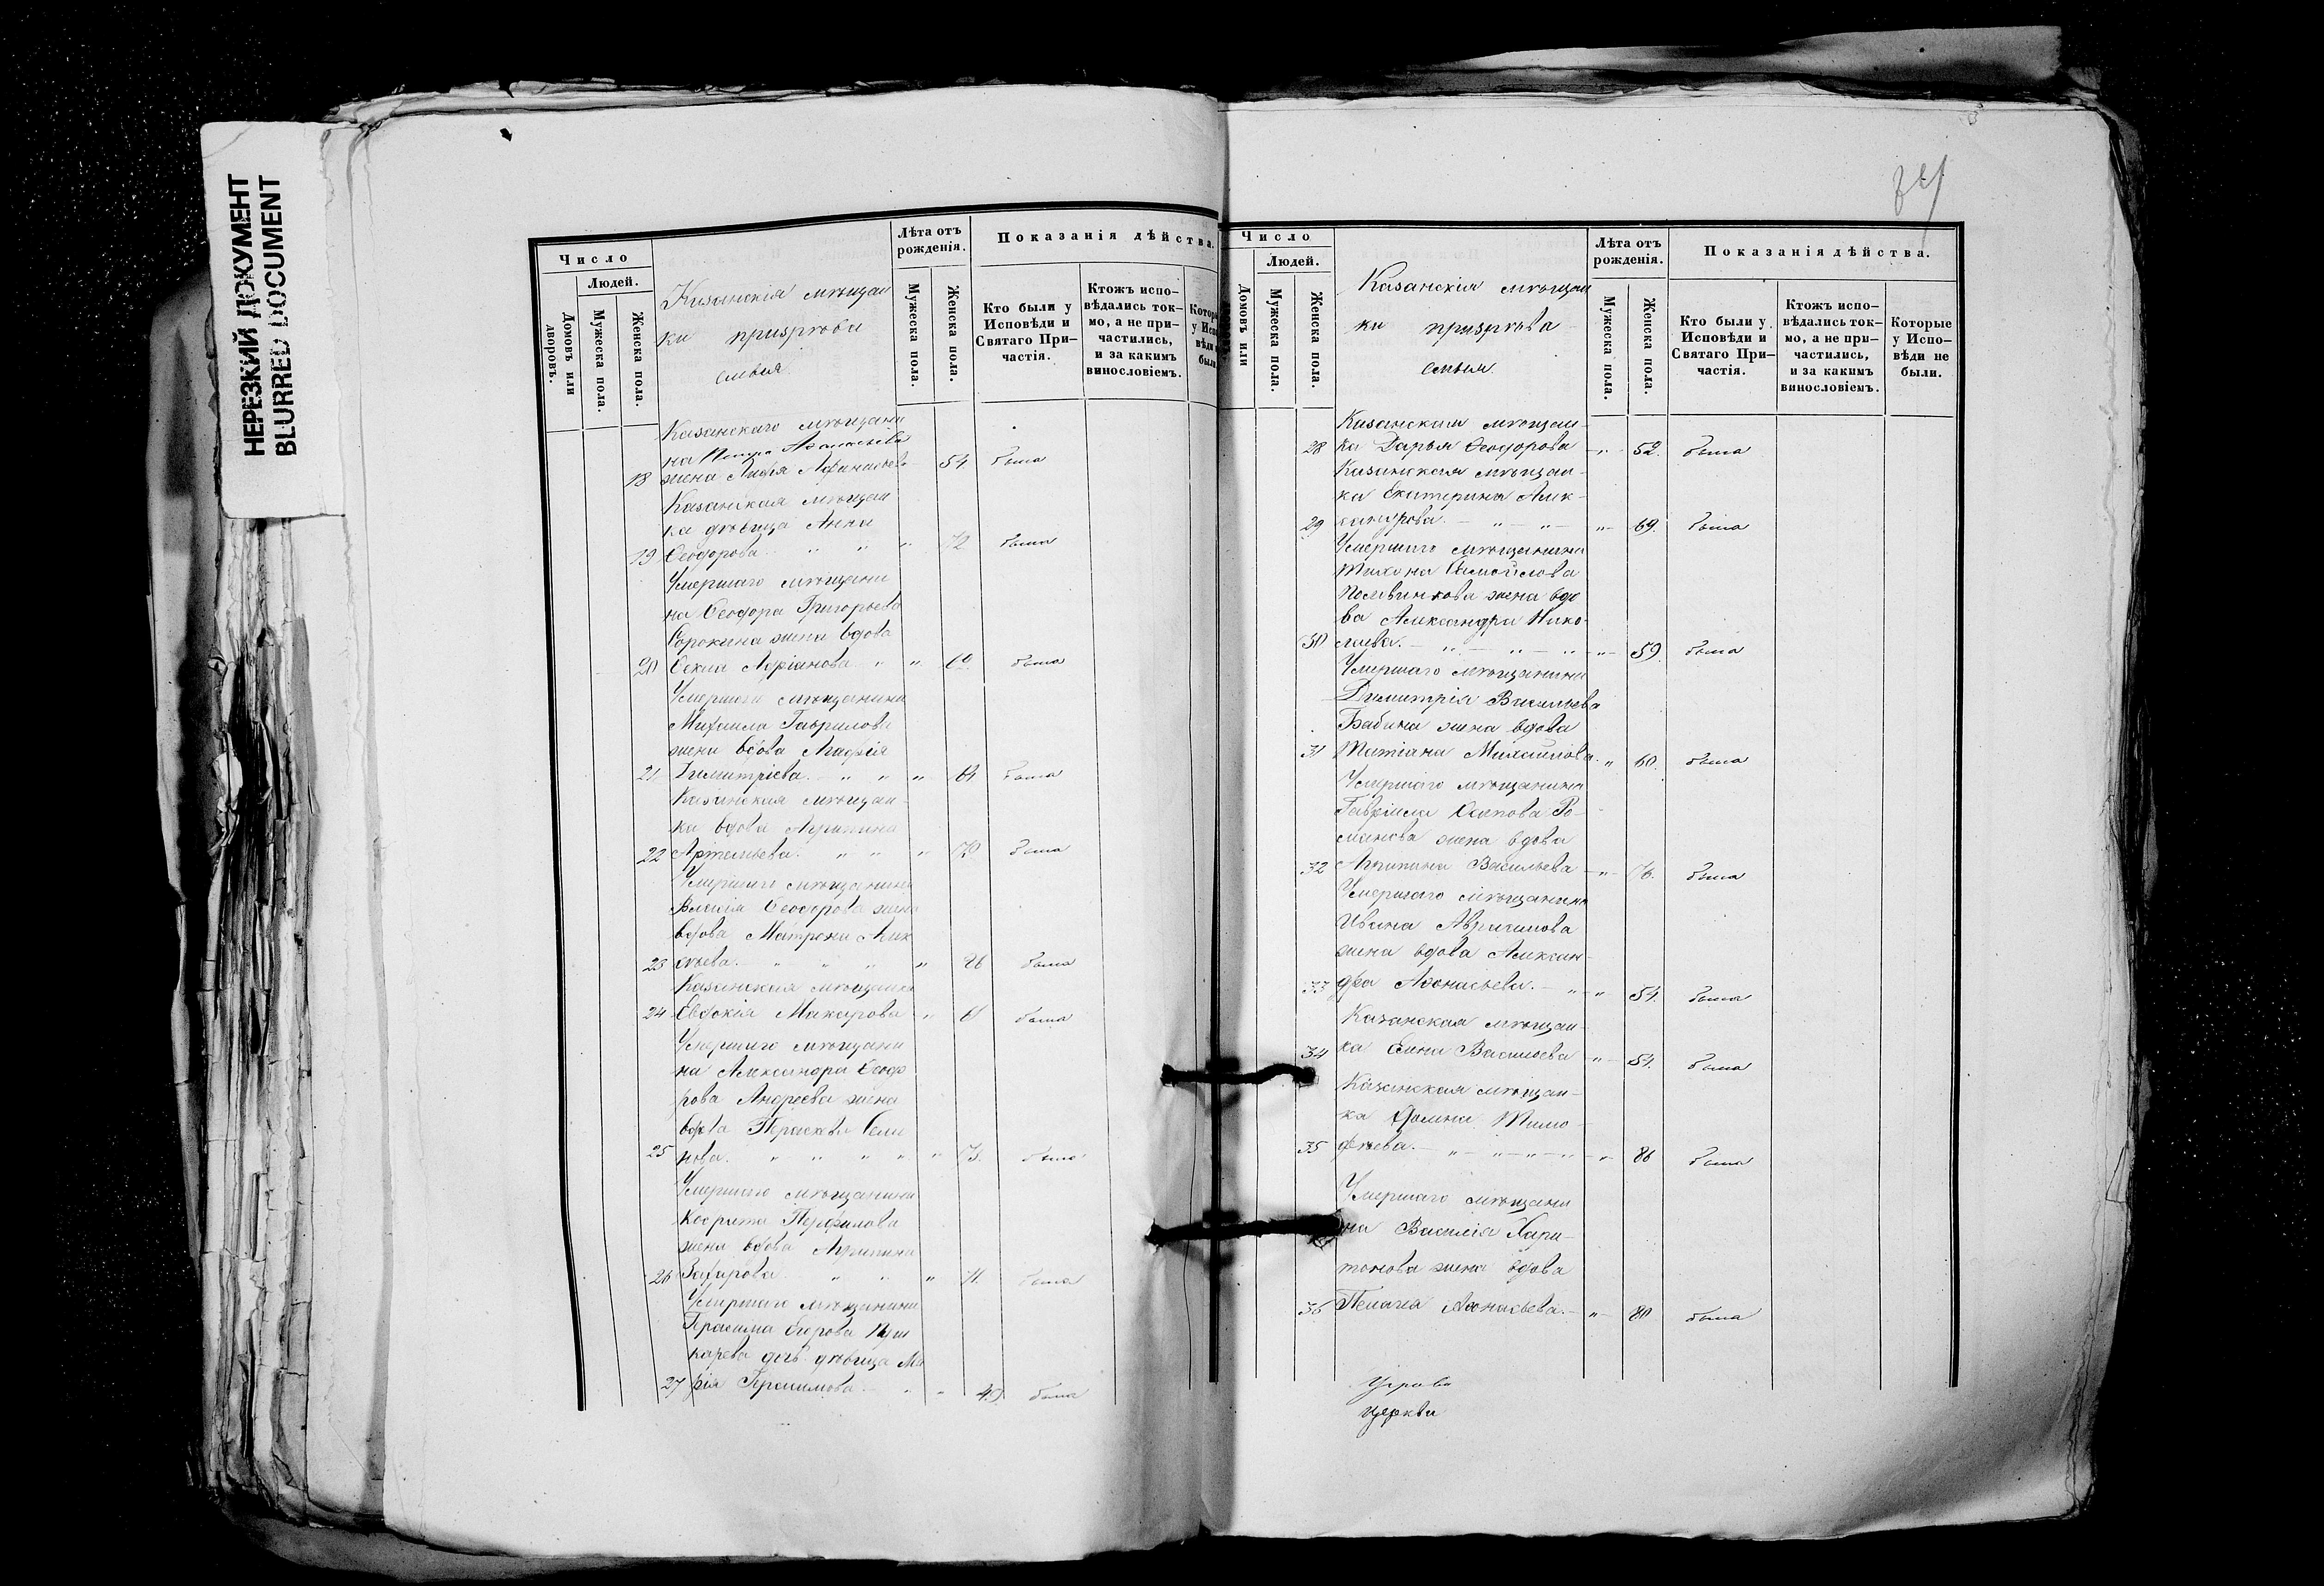 НЕРЕЗКИЙ ДОКУМЕНТ
BLURRED DOCUMENT
Число
Людей.
Домовъ или дворовъ.
Мужеска пола.
Женска пола.
Казанскія мѣщан
ки
Лѣта отъ рожденія.
Мужеска пола.
Женска пола.
Показанія дѣйства.
Кто были у Исповѣди и Святаго При-
частія.
Ктожъ испо-
вѣдались ток-
мо, а не при-
частились,
и за какимъ
винословіемъ.
Казанскаго мѣщани
на Аѳанасьева
18 жена Аѳанасьева 54 была
Казанская мѣщан
ка дѣвица Анна
19 Ѳеодорова " " " 72 была
Умершаго мѣщани
на Ѳеодора Григорьева
Сорокина жена вдова
20 Ѳекла Адріанова " " была
Умершаго мѣщанина
Михаила Гаврилова
жена вдова Агафія
21 Димитріева. " " " 64 была
Казанская мѣщан-
ка вдова Агрипина
22 Артемьева. " " " 70 была
Умершаго мѣщанина
Ѳеодорова жена
вдова Матрена Алек
23 сѣева. " " " " была
Казанская мѣщанка
24 Евдокія Макарова " была
Умершаго мѣщани
на Александра Ѳеодо
рова Андреева жена
вдова Параскева Семе
25 нова. " " " " " 73. была
Умершаго мѣщанина
Перфилова
жена вдова Агрипина
26 Захарова " " " 71. была
Умершаго мѣщанина
Герасима Егорова Пуш
карева дочь дѣвица Ма
27 рія Герасимова " " 49 была
Число
Людей.
Домовъ или
Мужеска пола.
Женска пола.
Казанскія мѣщан
ки
Лѣта отъ рожденія.
Мужеска пола.
Женска пола.
Показанія дѣйства.
Кто были у Исповѣди и Святаго При-
частія.
Ктожъ испо-
вѣдались ток-
мо, а не при-
частились,
и за какимъ
винословіемъ.
Которые
у Испо-
вѣди не
были.
Казанская мѣщан-
28 ка Дарья Ѳеодорова " 52. была
Казанская мѣщан-
ка Екатерина Алек-
29 сандрова. " " " 69. была
Умершаго мѣщанина
Тихона Самойлова
жена вдо
ва Александра Нико-
30 лаева. " " " " 59. была
Умершаго мѣщанина
Димитрія Васильева
Бабина жена вдова
31 Татіана Михайлова. " 60. была
Умершаго мѣщанина
Гавріила Осипова Ро-
манова жена вдова
32 Агрипина Васильева " 76. была
Умершаго мѣщанина
Ивана Авраамова
жена вдова Алексан-
33 дра Аѳонасьева. " " 54. была
Казанская мѣщан-
34 ка Елена Васильева " 54. была
Казанская мѣщан-
ка Домна Тимо-
35 фѣева. " " " " " 86 была
Умершаго мѣщани
на Василія Хари-
тонова жена вдова
36 Пелагея Аѳонасьева. " 80 была
церкви